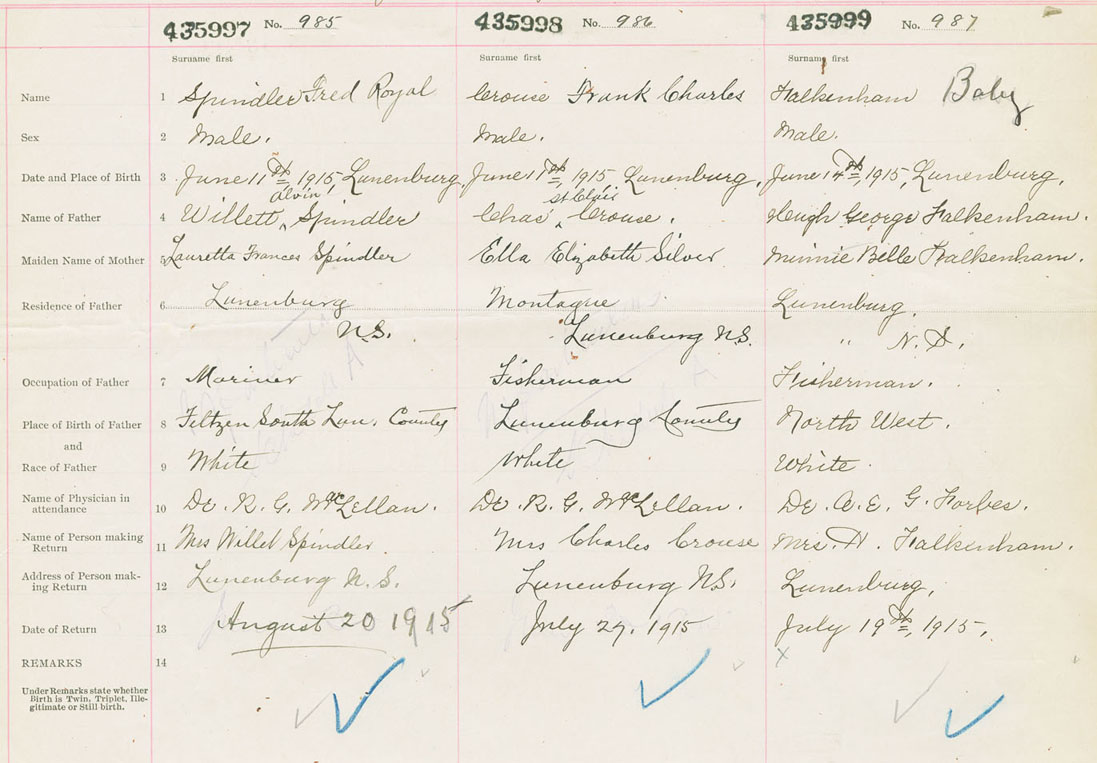 435997 No. 985 435998 No. 986 435999 No. 987
Surname first Surname first Surname first
Name 1 Spindler Fred Royal Crouse Frank Charles Falkenham Baby
Sex 2 Male. Male. Male.
Date and Place of Birth 3 June 11th, 1915, Lunenburg, June 11th, 1915 Lunenburg, June 14th, 1915, Lunenburg.
Alvin St Clair
Name of Father 4 Willett ‸ Spindler Chas ‸ Crouse. Hugh George Falkenham.
Maiden Name of Mother 5 Lauretta Frances Spindler Ella Elizabeth Silver Minnie Belle Falkenham.
Residence of Father 6 Lunenburg Montague Lunenburg,
N.S. Lunenburg N.S. " N.S.
Occupation of Father 7 Mariner Fisherman Fisherman.
Place of Birth of Father 8 Feltzen South Lun. County Lunenburg County North West.
and
Race of Father 9 White White White.
Name of Physician in
attendance 10 Dr. R. G. McLellan. Dr. R. G. McLellan. Dr. A. E. G. Forbes.
Name of Person making
Return 11 Mrs Willet Spindler Mrs Charles Crouse Mrs. H. Falkenham.
Address of Person mak-
ing Return 12 Lunenburg N.S. Lunenburg N.S. Lunenburg,
Date of Return 13 August 20 1915 July 27, 1915 July 19th, 1915.
REMARKS 14 x
Under Remarks state whether
Birth is Twin, Triplet, Ille-
gitimate or Still birth.